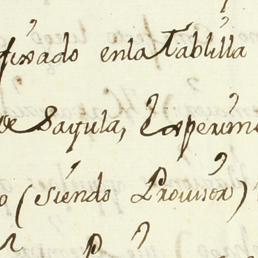 fixado enla Tablilla
de Sayula, Experim
o (siendo Provisor)